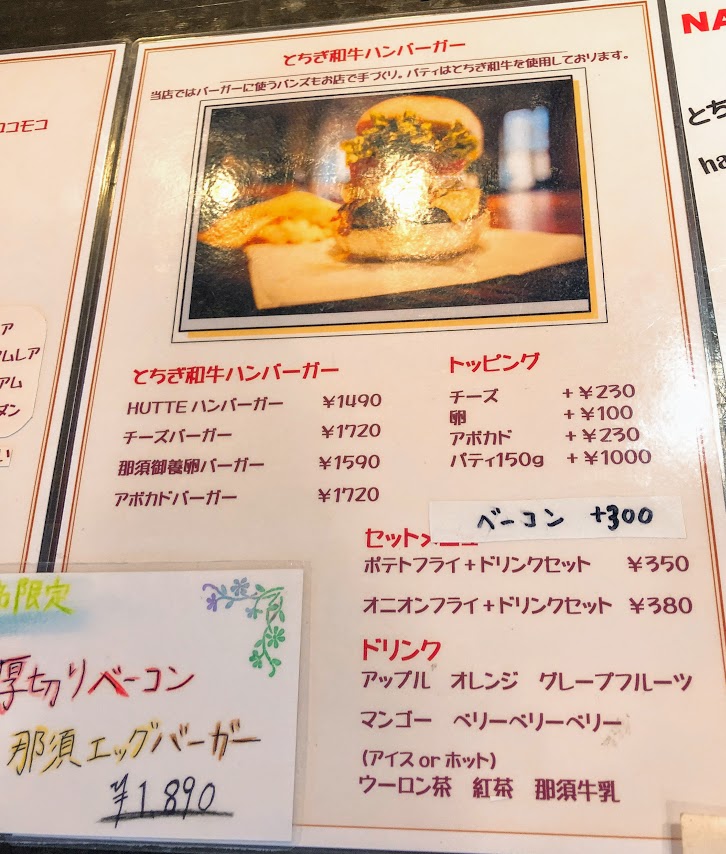 とちぎ和牛ハンバーガー
当店ではバーガーに使うバンズもお店で手づくり。パティはとちぎ和牛を使用しております。
とちぎ和牛ハンバーガー
HUTTE ハンバーガー ¥1490
チーズバーガー ¥1720
那須御養卵バーガー ¥1590
アボカドバーガー ¥1720
トッピング
チーズ +¥230
卵 +¥100
アボカド +¥230
パティ150g +¥1000
ベーコン +300
セットメニュー
ポテトフライ+ドリンクセット ¥350
オニオンフライ+ドリンクセット ¥380
ドリンク
アップル オレンジ グレープフルーツ
マンゴー ベリーベリーベリー
(アイス or ホット)
ウーロン茶 紅茶 那須牛乳
限定
厚切りベーコン
那須エッグバーガー
¥1,890
ロコモコ
ア
ムレア
アム
ダン
い
NA
とち
ha